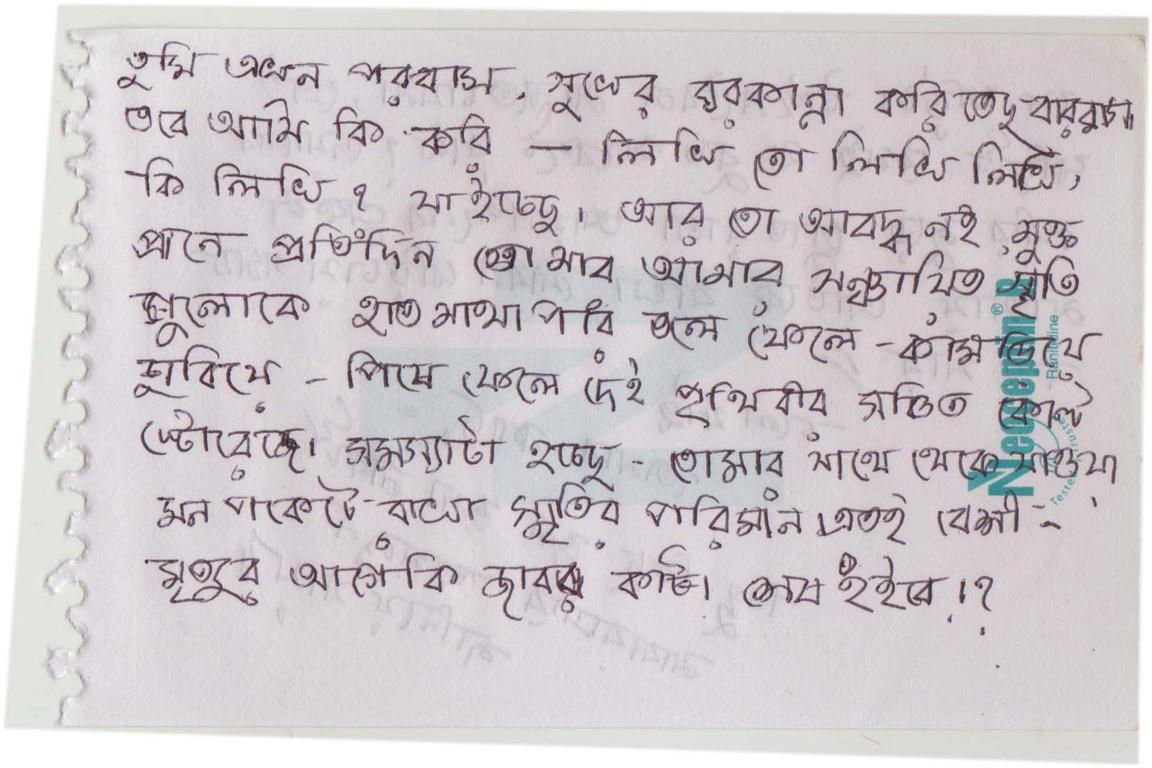 তুমি এখন পরবাস সুখের ঘরকান্না করিতেছ বারবার।
তবে আমি কি করি - লিখি তো লিখি লিখি,
কি লিখি? যাইচ্ছে। আর তো আবদ্ধ নই মুক্ত
প্রানে প্রতিদিন তোমার আমার সঞ্চায়িত স্মৃতি
গুলোকে হাত মাথা পা ফেলে - কামড়িয়ে
চুবিয়ে - পিষে ফেলে দেই পৃথিবীর সঞ্চিত কোল্ট
স্টোরেজে। সমস্যাটা হচ্ছে - তোমার সাথে থেকে যাওয়া
মন পকেটে রাখা স্মৃতির পরিমান এতই বেশী -
মৃত্যুর আগে কি জাবর কাটা শেষ হইবে।?
Neeepin R®
Ranitidine